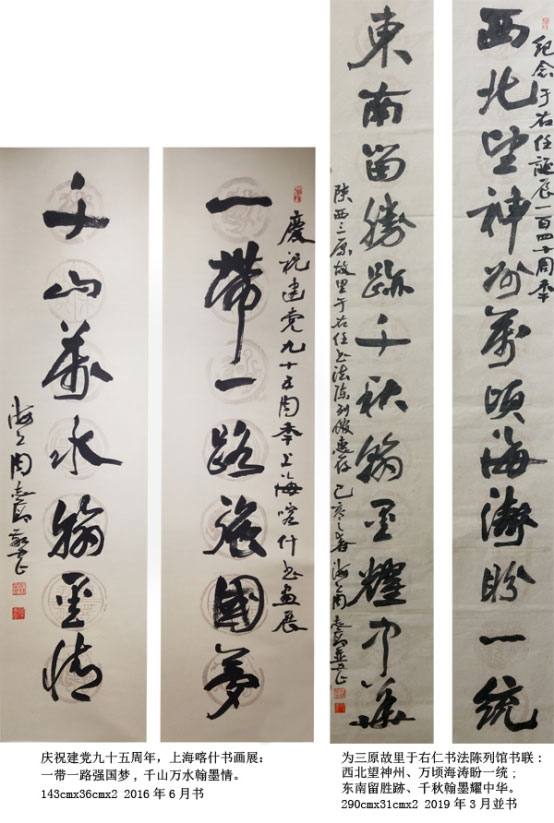 纪念于右任誕辰一百四十周年
西北望神州萬頃海濤盼一統
東南留勝跡千秋翰墨耀中華
陕西三原故里于右任书法陈列馆惠存 己亥之春 海上周
慶祝建党九十五周年上海喀什书画展
一帶一路强國夢
千山萬水翰墨情
海上周 敬书
庆祝建党九十五周年，上海喀什书画展：
一带一路强国梦，千山万水翰墨情。
143cmx36cmx2 2016 年 6 月书
为三原故里于右仁书法陈列馆书联：
西北望神州、万顷海涛盼一统；
东南留胜跡、千秋翰墨耀中华。
290cmx31cmx2 2019 年 3 月並书